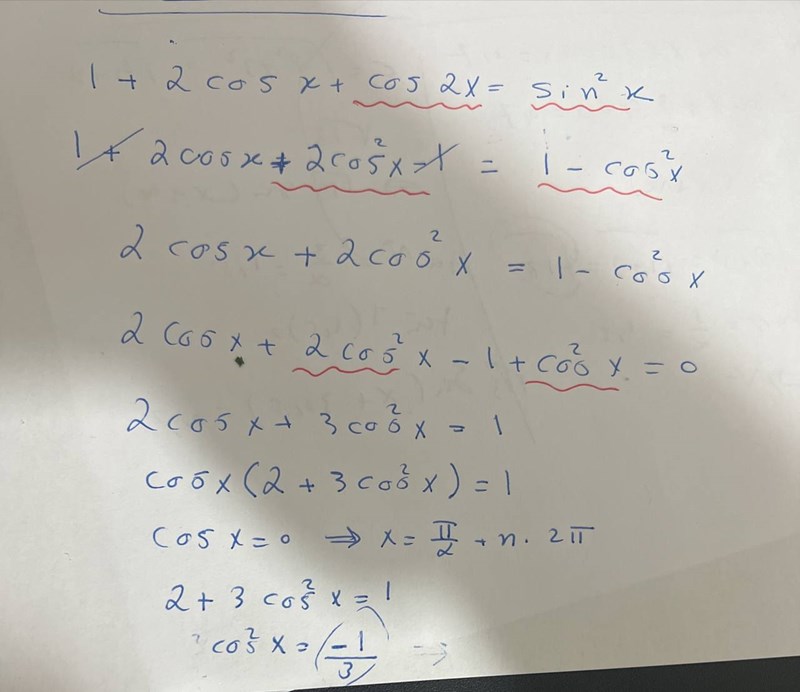 1 + 2 cos x + cos 2x = sin² x
1 + 2 cos x + 2 cos² x - 1 = 1 - cos² x
2 cos x + 2 cos² x = 1 - cos² x
2 cos x + 2 cos² x - 1 + cos² x = 0
2 cos x + 3 cos² x = 1
cos x (2 + 3 cos² x) = 1
cos x = 0 ⇒ x = π/2 + n · 2π
2 + 3 cos² x = 1
cos² x = (-1/3) →